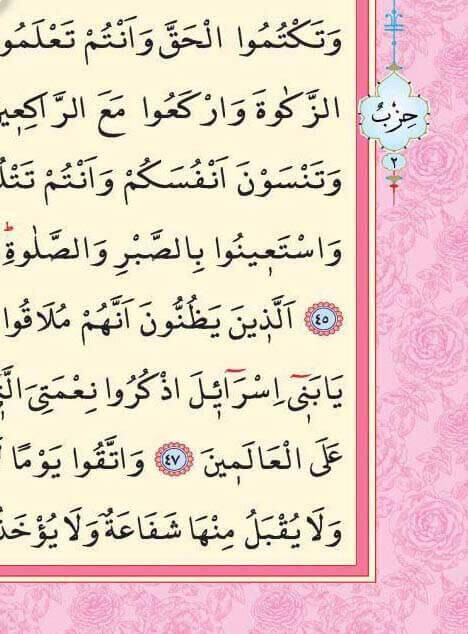 وَتَكْتُمُوا الْحَقَّ وَاَنْتُمْ تَعْلَمُو
الزَّكٰوةَ وَارْكَعُوا مَعَ الرَّاكِعٖي
وَتَنْسَوْنَ اَنْفُسَكُمْ وَاَنْتُمْ تَتْلُ
وَاسْتَعٖينُوا بِالصَّبْرِ وَالصَّلٰوةِۜ
٤٥ اَلَّذٖينَ يَظُنُّونَ اَنَّهُمْ مُلَاقُوا
يَابَنٖٓى اِسْرَآئٖلَ اذْكُرُوا نِعْمَتِىَ الَّتٖ
عَلَى الْعَالَمٖينَ ٤٧ وَاتَّقُوا يَوْمًا
وَلَا يُقْبَلُ مِنْهَا شَفَاعَةٌ وَلَا يُؤْخَذُ
حِزْبٌ
٢